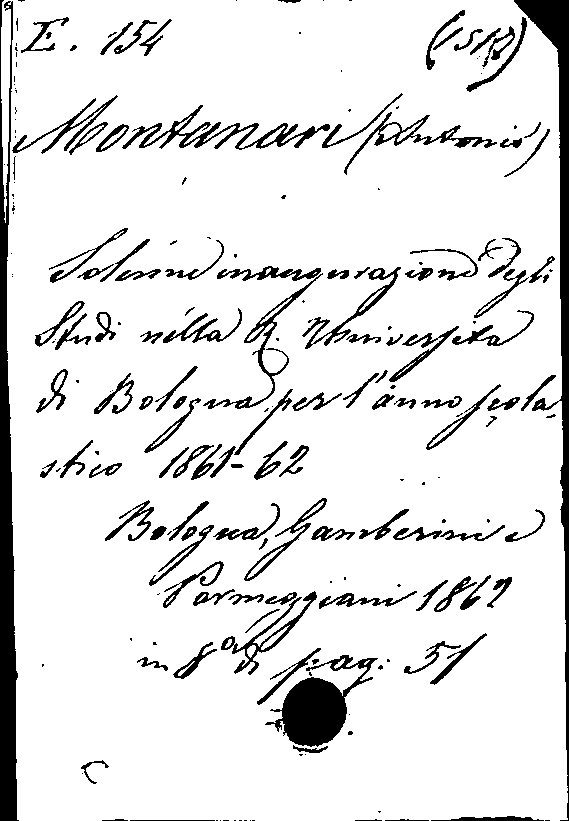 E. 154
Montanari (Antonio)
Solenne inaugurazione degli
Studi nella R. Università
di Bologna per l'anno scola-
stico 1861-62
Bologna, Gamberini e
Parmeggiani 1862
in 8° di pag: 51